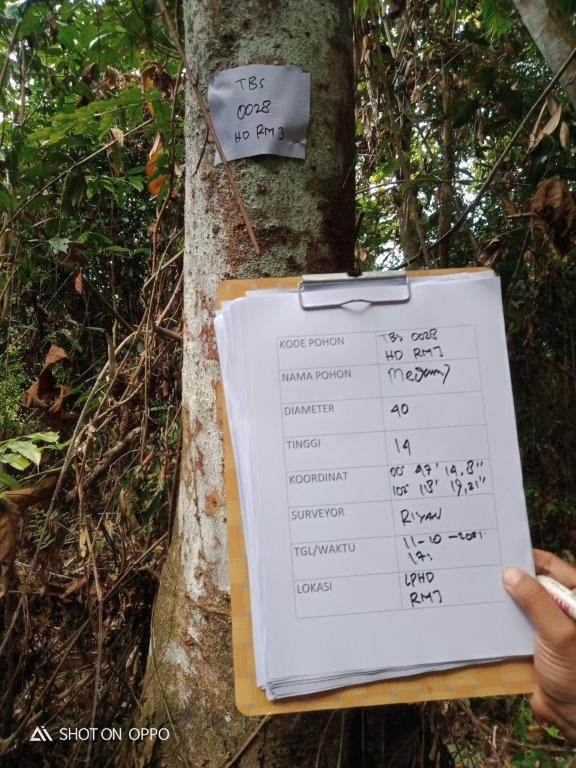 TBS
0028
HD RMJ
KODE POHON TBS 0028
HD RMJ
NAMA POHON
DIAMETER 40
TINGGI 14
KOORDINAT 00° 47' 14,8"
SURVEYOR RIYAN
TGL/WAKTU 11-10-2021
LOKASI LPHD
RMJ
SHOT ON OPPO